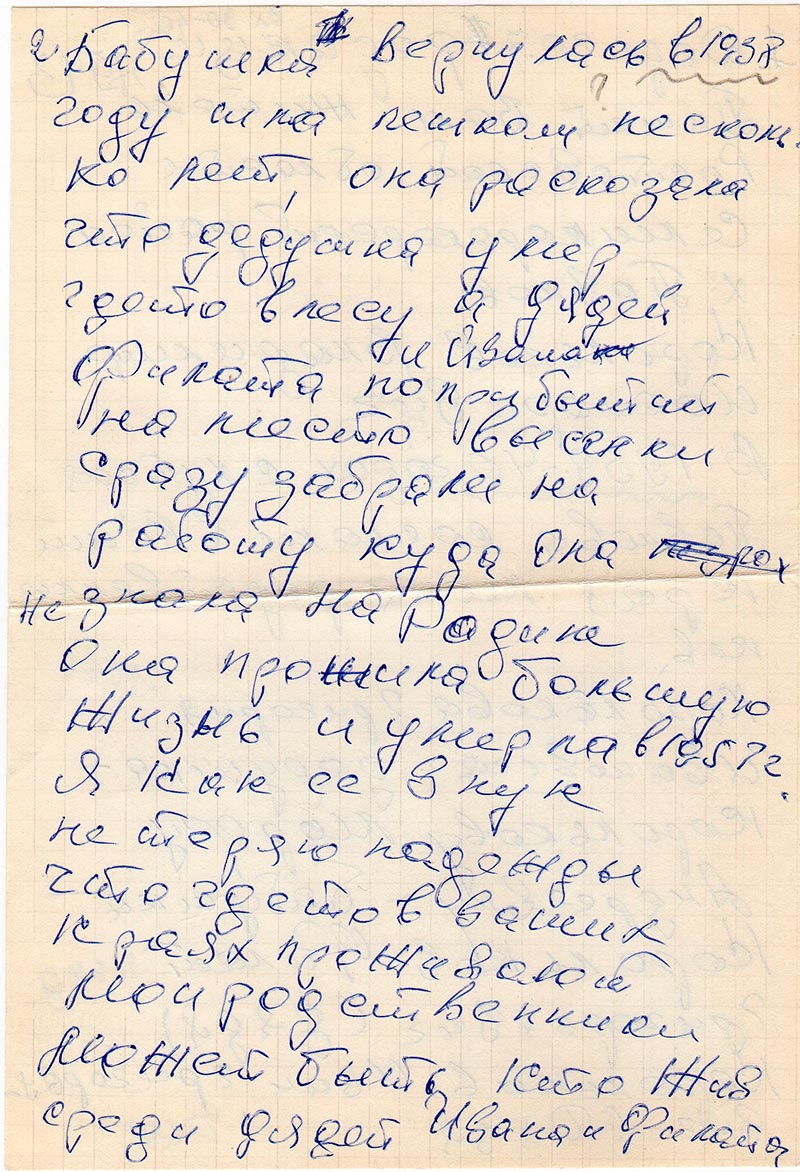 2) Бабушка вернулась в 1938
году шла пешком несколь-
ко лет, она расказала
что дедушка умер
гдето в лесу а дядей
и Ивана
Филата по прибытит
на место высылки
сразу забрали на
работу куда она
не знала на Родине
Она прожила большую
жизнь и умерла в 1957 г.
Я как ее внук
не теряю надежды
что гдето в ваших
краях проживают
мои родственники
может быть кто жив
среди дядей Ивана и Филата